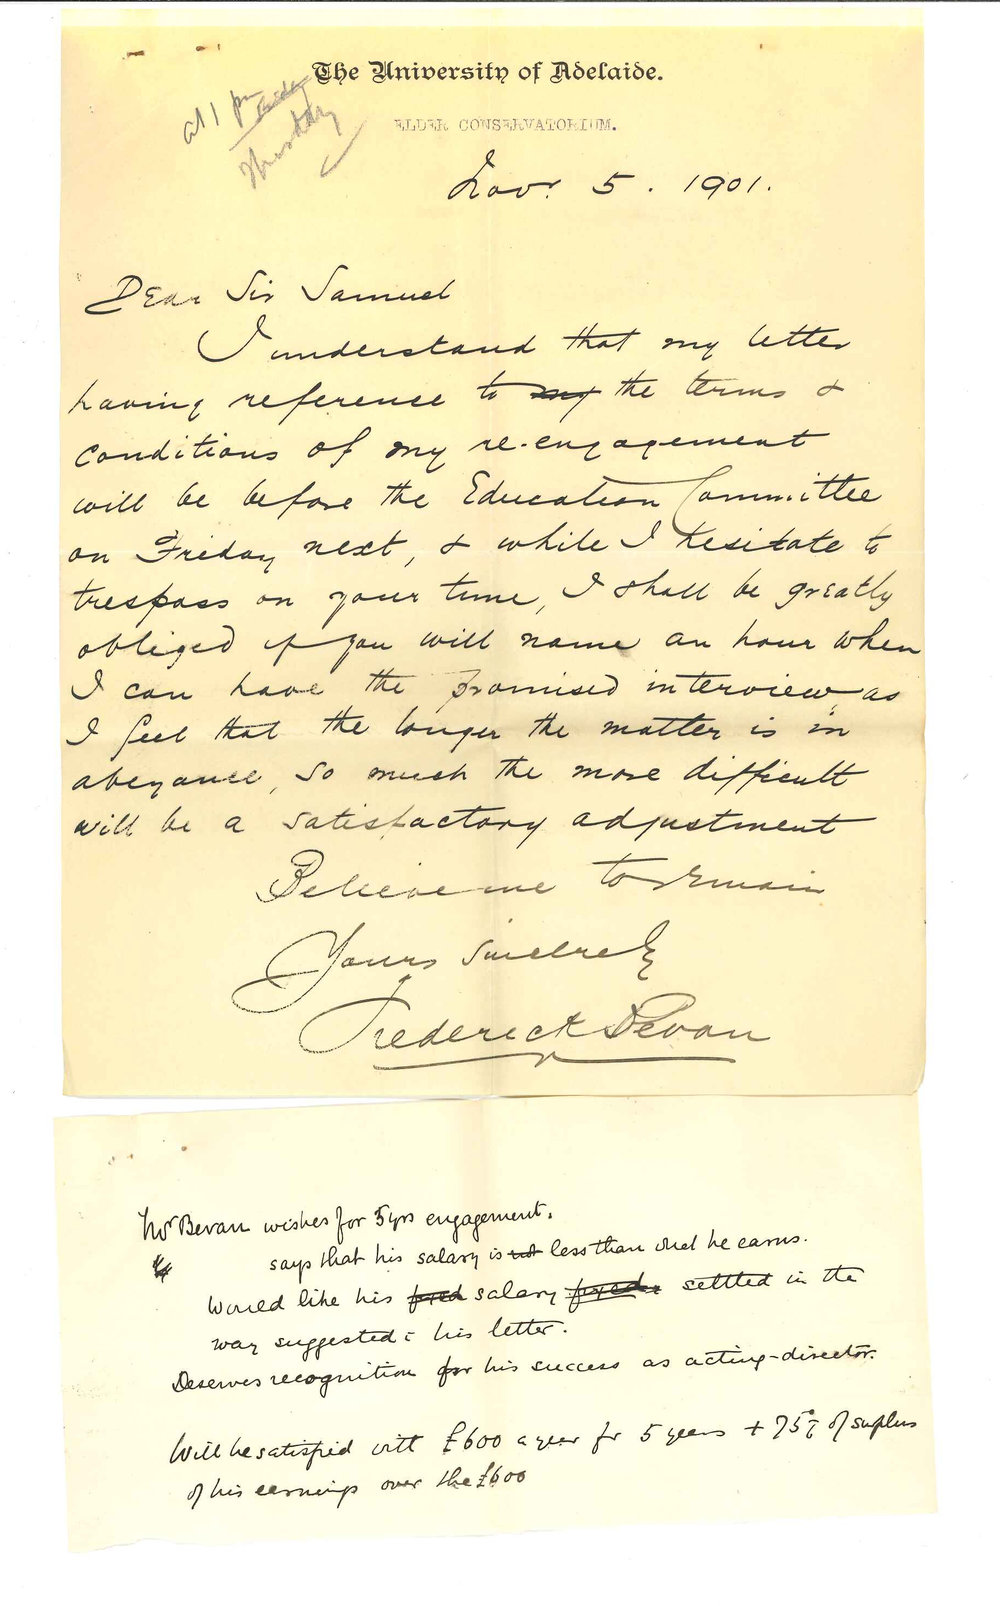 The University of Adelaide.
ELDER CONSERVATORIUM.
at 1 pm Friday
Thursday
Novr 5. 1901.
Dear Sir Samuel
I understand that my letter
having reference to my the terms &
conditions of my re-engagement
will be before the Education Committee
on Friday next, & while I hesitate to
trespass on your time, I shall be greatly
obliged if you will name an hour when
I can have the promised interview, as
I feel that the longer the matter is in
abeyance, so much the more difficult
will be a satisfactory adjustment
Believe me to remain
Yours sincerely
Frederick Bevan
Mr Bevan wishes for 5 yrs engagement.
says that his salary is not less than what he earns.
Would like his fixed salary fixed settled in the
way suggested in his letter.
Deserves recognition for his success as acting-director.
Will be satisfied with £600 a year for 5 years + 75% of surplus
of his earnings over the £600